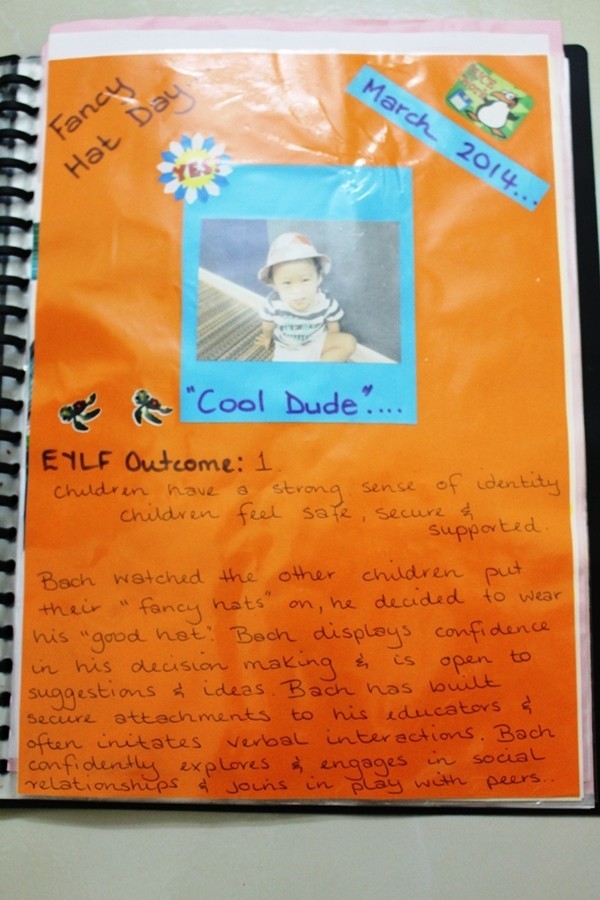 Fancy
Hat Day
March 2014...
YES!
"Cool Dude"....
EYLF Outcome: 1.
Children have a strong sense of identity
children feel safe, secure &
supported.
Bach watched the other children put
their "fancy hats" on, he decided to wear
his "good hat". Bach displays confidence
in his decision making & is open to
suggestions & ideas. Bach has built
secure attachments to his educators &
often initates verbal interactions. Bach
confidently explores & engages in social
relationships & joins in play with peers..